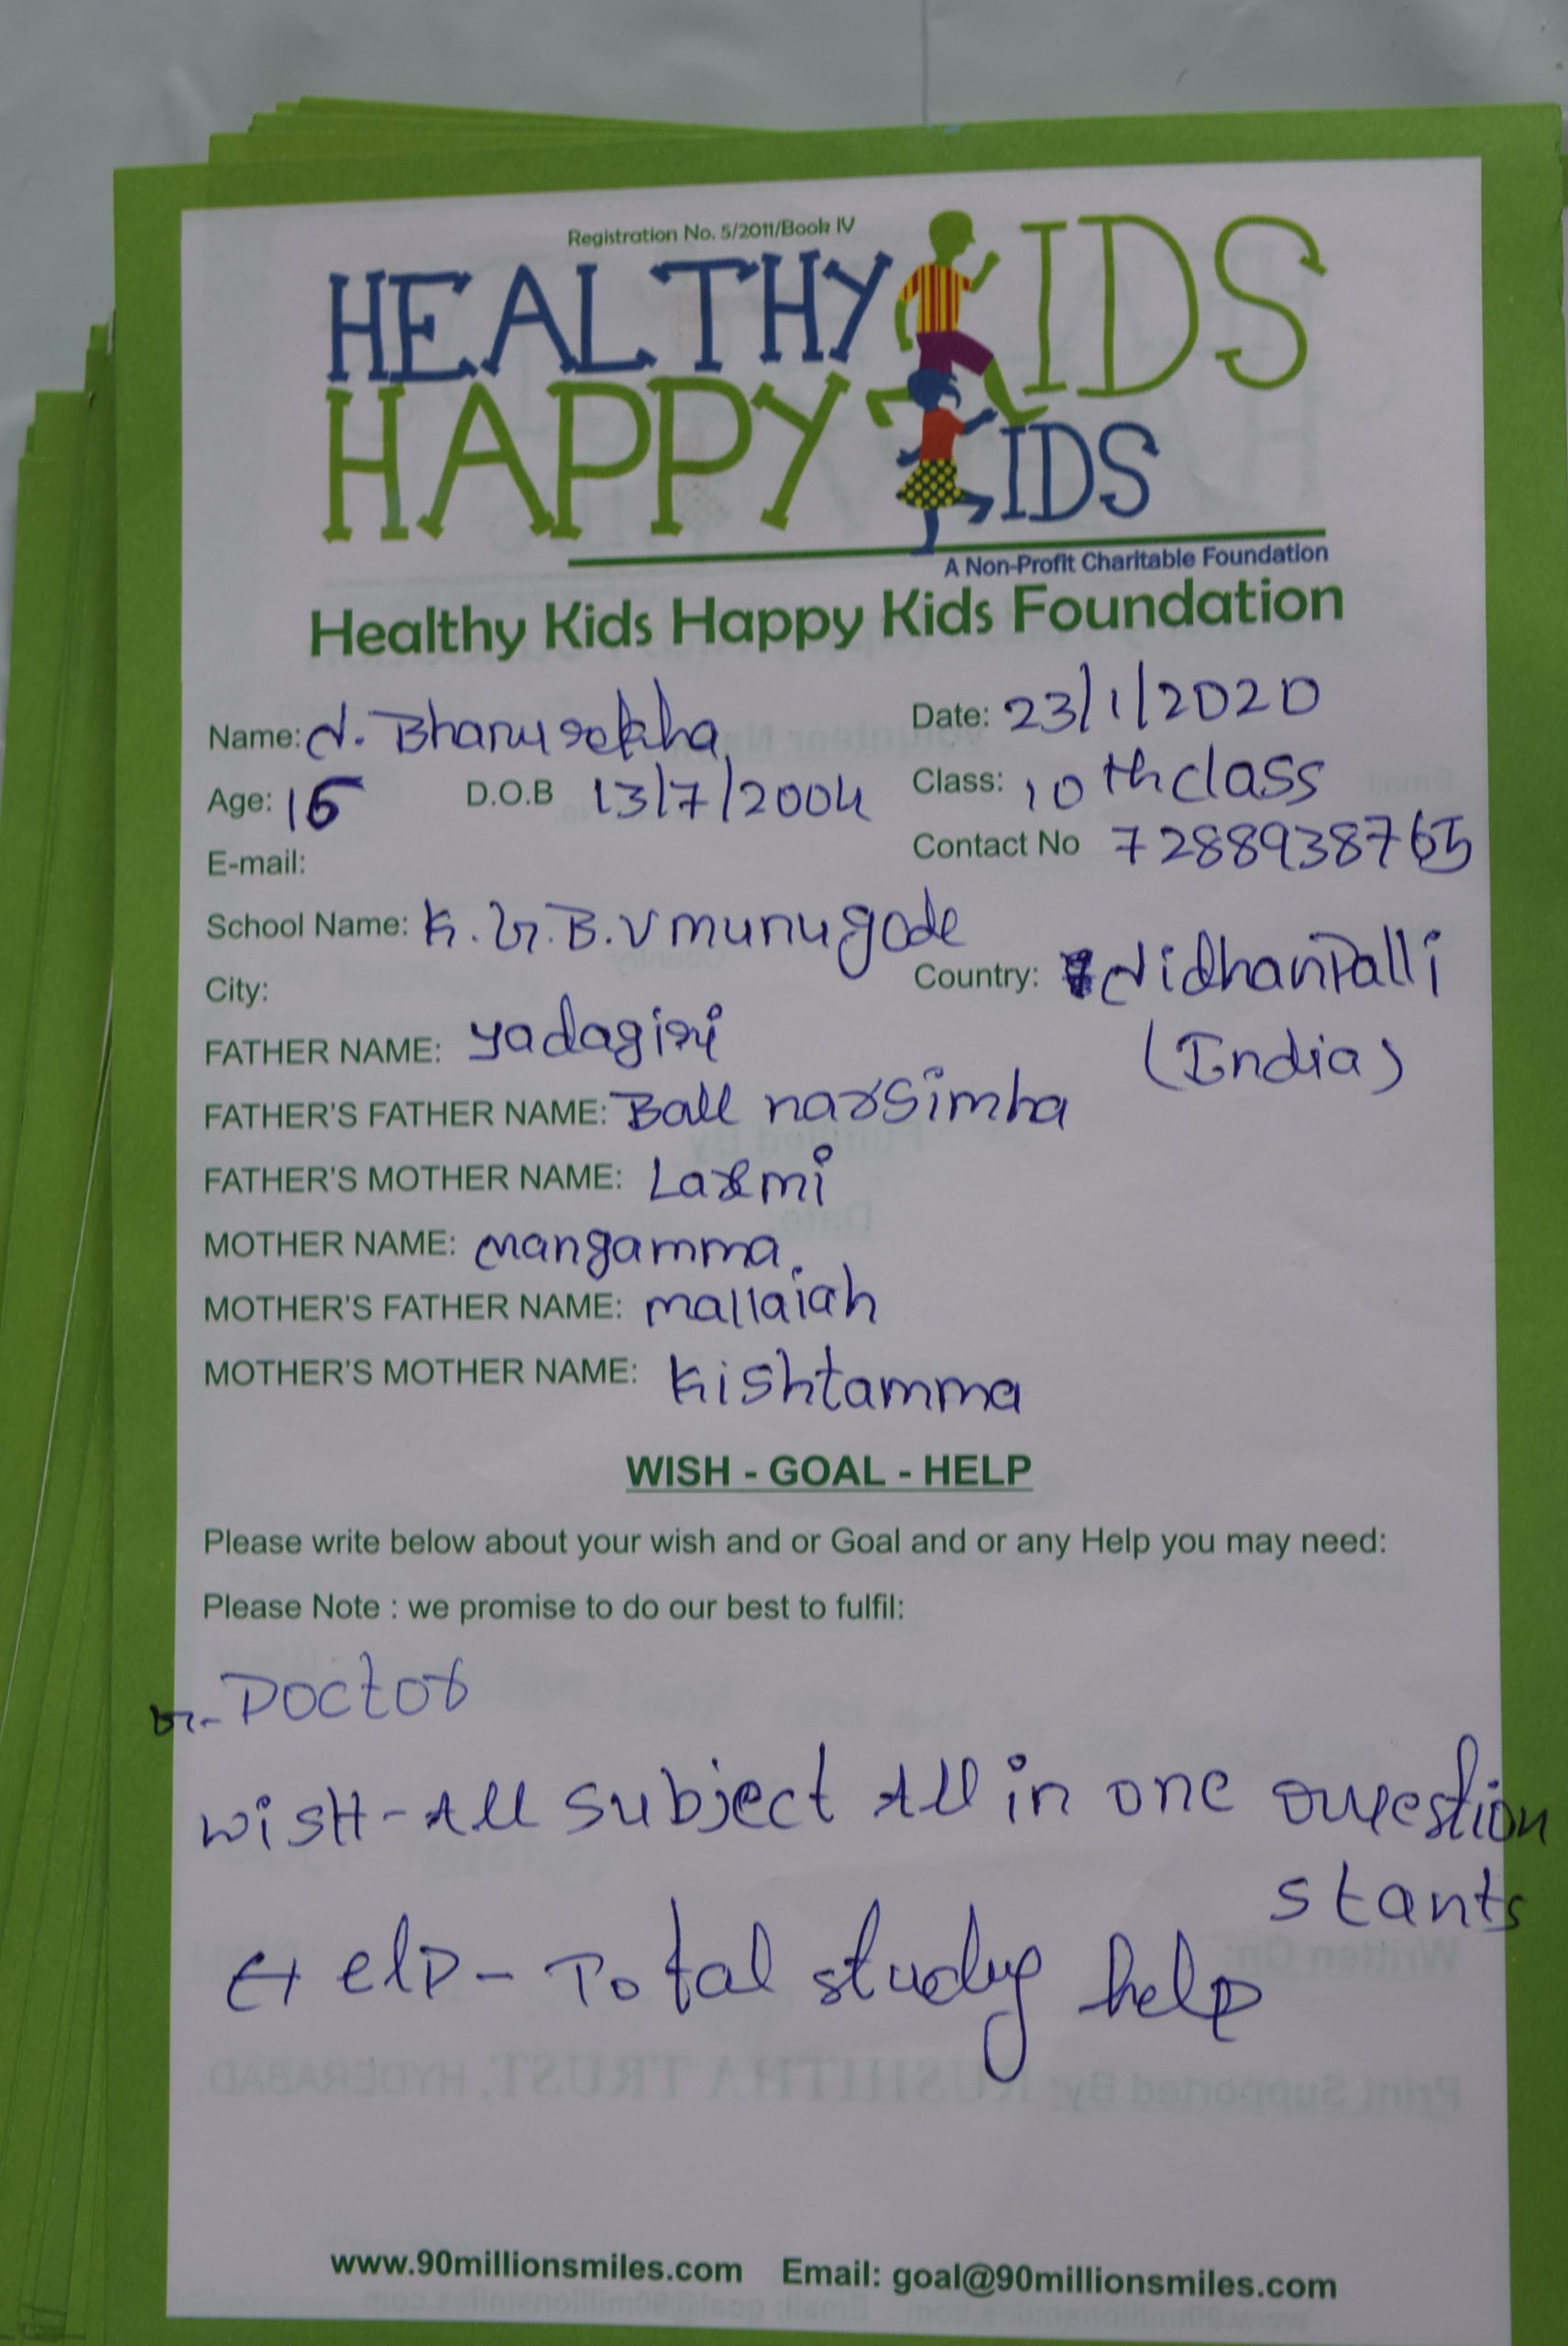 Registration No. 5/2011/Book IV
HEALTHY KIDS
HAPPY KIDS
A Non-Profit Charitable Foundation
Healthy Kids Happy Kids Foundation
Name: N. Bhanurekha Date: 23/1/2020
Age: 16 D.O.B 13/7/2004 Class: 10th class
E-mail: Contact No 7288938765
School Name: K.G.B.V munugode
City: Country: NidhanPalli
(India)
FATHER NAME: yadagiri
FATHER'S FATHER NAME: Ball narsimha
FATHER'S MOTHER NAME: Laxmi
MOTHER NAME: mangamma.
MOTHER'S FATHER NAME: mallaiah
MOTHER'S MOTHER NAME: Kishtamma
WISH - GOAL - HELP
Please write below about your wish and or Goal and or any Help you may need:
Please Note : we promise to do our best to fulfil:
G.- Doctor
WisH - All Subject All in one
stants
HelP - Total study help
Print Supported By: RUSHITHA TRUST, HYDERABAD.
www.90millionsmiles.com Email: goal@90millionsmiles.com